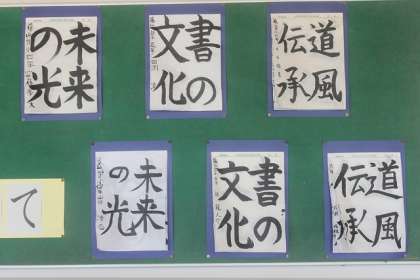 未来
の光
書の
文化
道風
伝承
未来
の光
書の
文化
道風
伝承
て